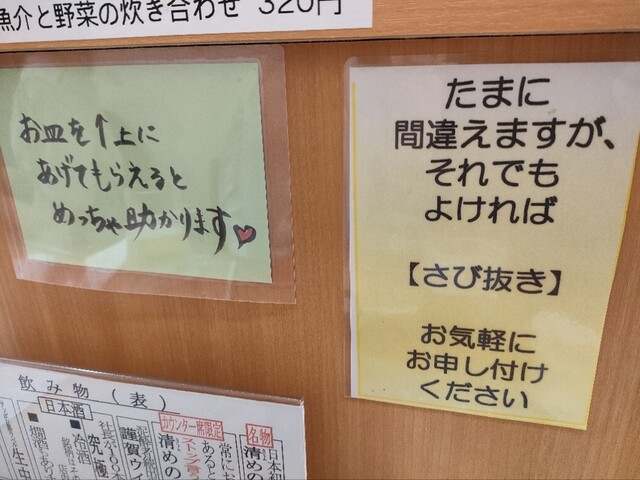 魚介と野菜の炊き合わせ 320円
お皿を↑上に
あげてもらえると
めっちゃ助かります♥
たまに
間違えますが、
それでも
よければ
【さび抜き】
お気軽に
お申し付け
ください
飲み物(表)
名物
日本初
清めの
カウンター席限定
ストップ言う
常にお
あると
清めの
謹賀ウイ
日本酒
■冷酒
究極
■燗酒
生中